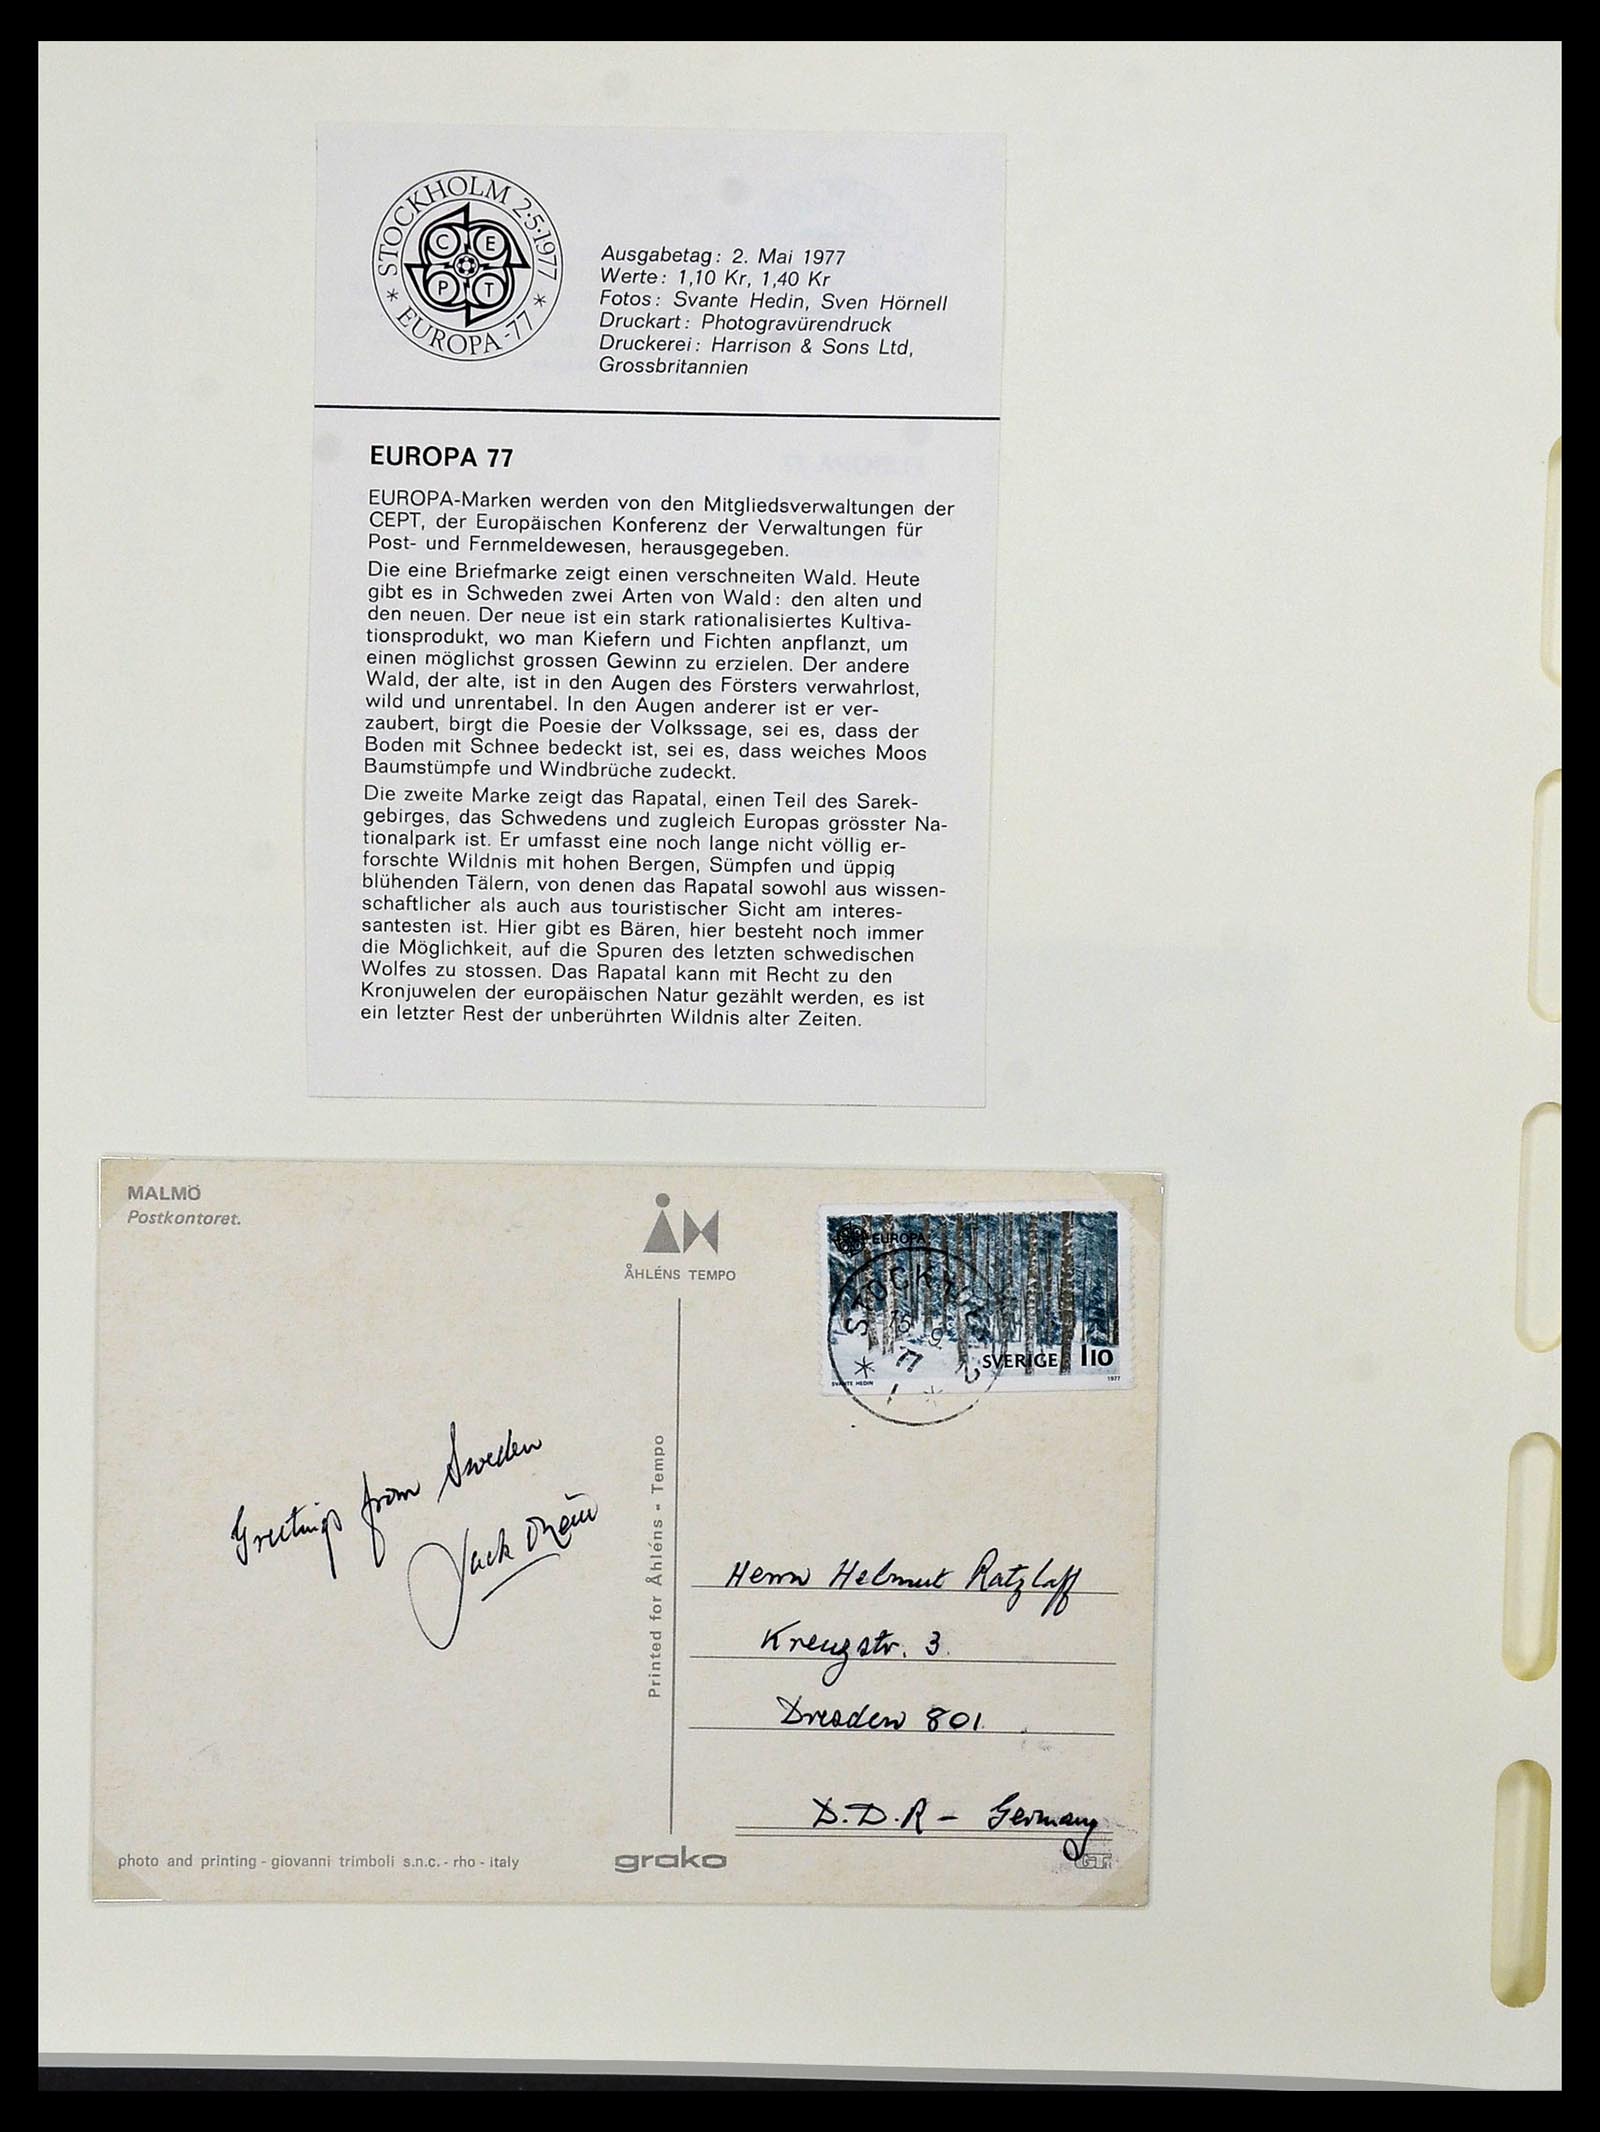 STOCKHOLM 2·5·1977
C E
P T
* EUROPA-77 *
Ausgabetag: 2. Mai 1977
Werte: 1,10 Kr, 1,40 Kr
Fotos: Svante Hedin, Sven Hörnell
Druckart: Photogravürendruck
Druckerei: Harrison & Sons Ltd,
Grossbritannien
EUROPA 77
EUROPA-Marken werden von den Mitgliedsverwaltungen der
CEPT, der Europäischen Konferenz der Verwaltungen für
Post- und Fernmeldewesen, herausgegeben.
Die eine Briefmarke zeigt einen verschneiten Wald. Heute
gibt es in Schweden zwei Arten von Wald: den alten und
den neuen. Der neue ist ein stark rationalisiertes Kultiva-
tionsprodukt, wo man Kiefern und Fichten anpflanzt, um
einen möglichst grossen Gewinn zu erzielen. Der andere
Wald, der alte, ist in den Augen des Försters verwahrlost,
wild und unrentabel. In den Augen anderer ist er ver-
zaubert, birgt die Poesie der Volkssage, sei es, dass der
Boden mit Schnee bedeckt ist, sei es, dass weiches Moos
Baumstümpfe und Windbrüche zudeckt.
Die zweite Marke zeigt das Rapatal, einen Teil des Sarek-
gebirges, das Schwedens und zugleich Europas grösster Na-
tionalpark ist. Er umfasst eine noch lange nicht völlig er-
forschte Wildnis mit hohen Bergen, Sümpfen und üppig
blühenden Tälern, von denen das Rapatal sowohl aus wissen-
schaftlicher als auch aus touristischer Sicht am interes-
santesten ist. Hier gibt es Bären, hier besteht noch immer
die Möglichkeit, auf die Spuren des letzten schwedischen
Wolfes zu stossen. Das Rapatal kann mit Recht zu den
Kronjuwelen der europäischen Natur gezählt werden, es ist
ein letzter Rest der unberührten Wildnis alter Zeiten.
MALMÖ
Postkontoret.
ÅHLÉNS TEMPO
EUROPA
STOCKHOLM
15 9
77
SVERIGE 110
SVANTE HEDIN 1977
Greetings from Sweden
Jack
Printed for Åhléns - Tempo
Herrn Helmut Ratzlaff
Kreuzstr. 3
Dresden 801
D.D.R - Germany
photo and printing - giovanni trimboli s.n.c. - rho - italy
grako